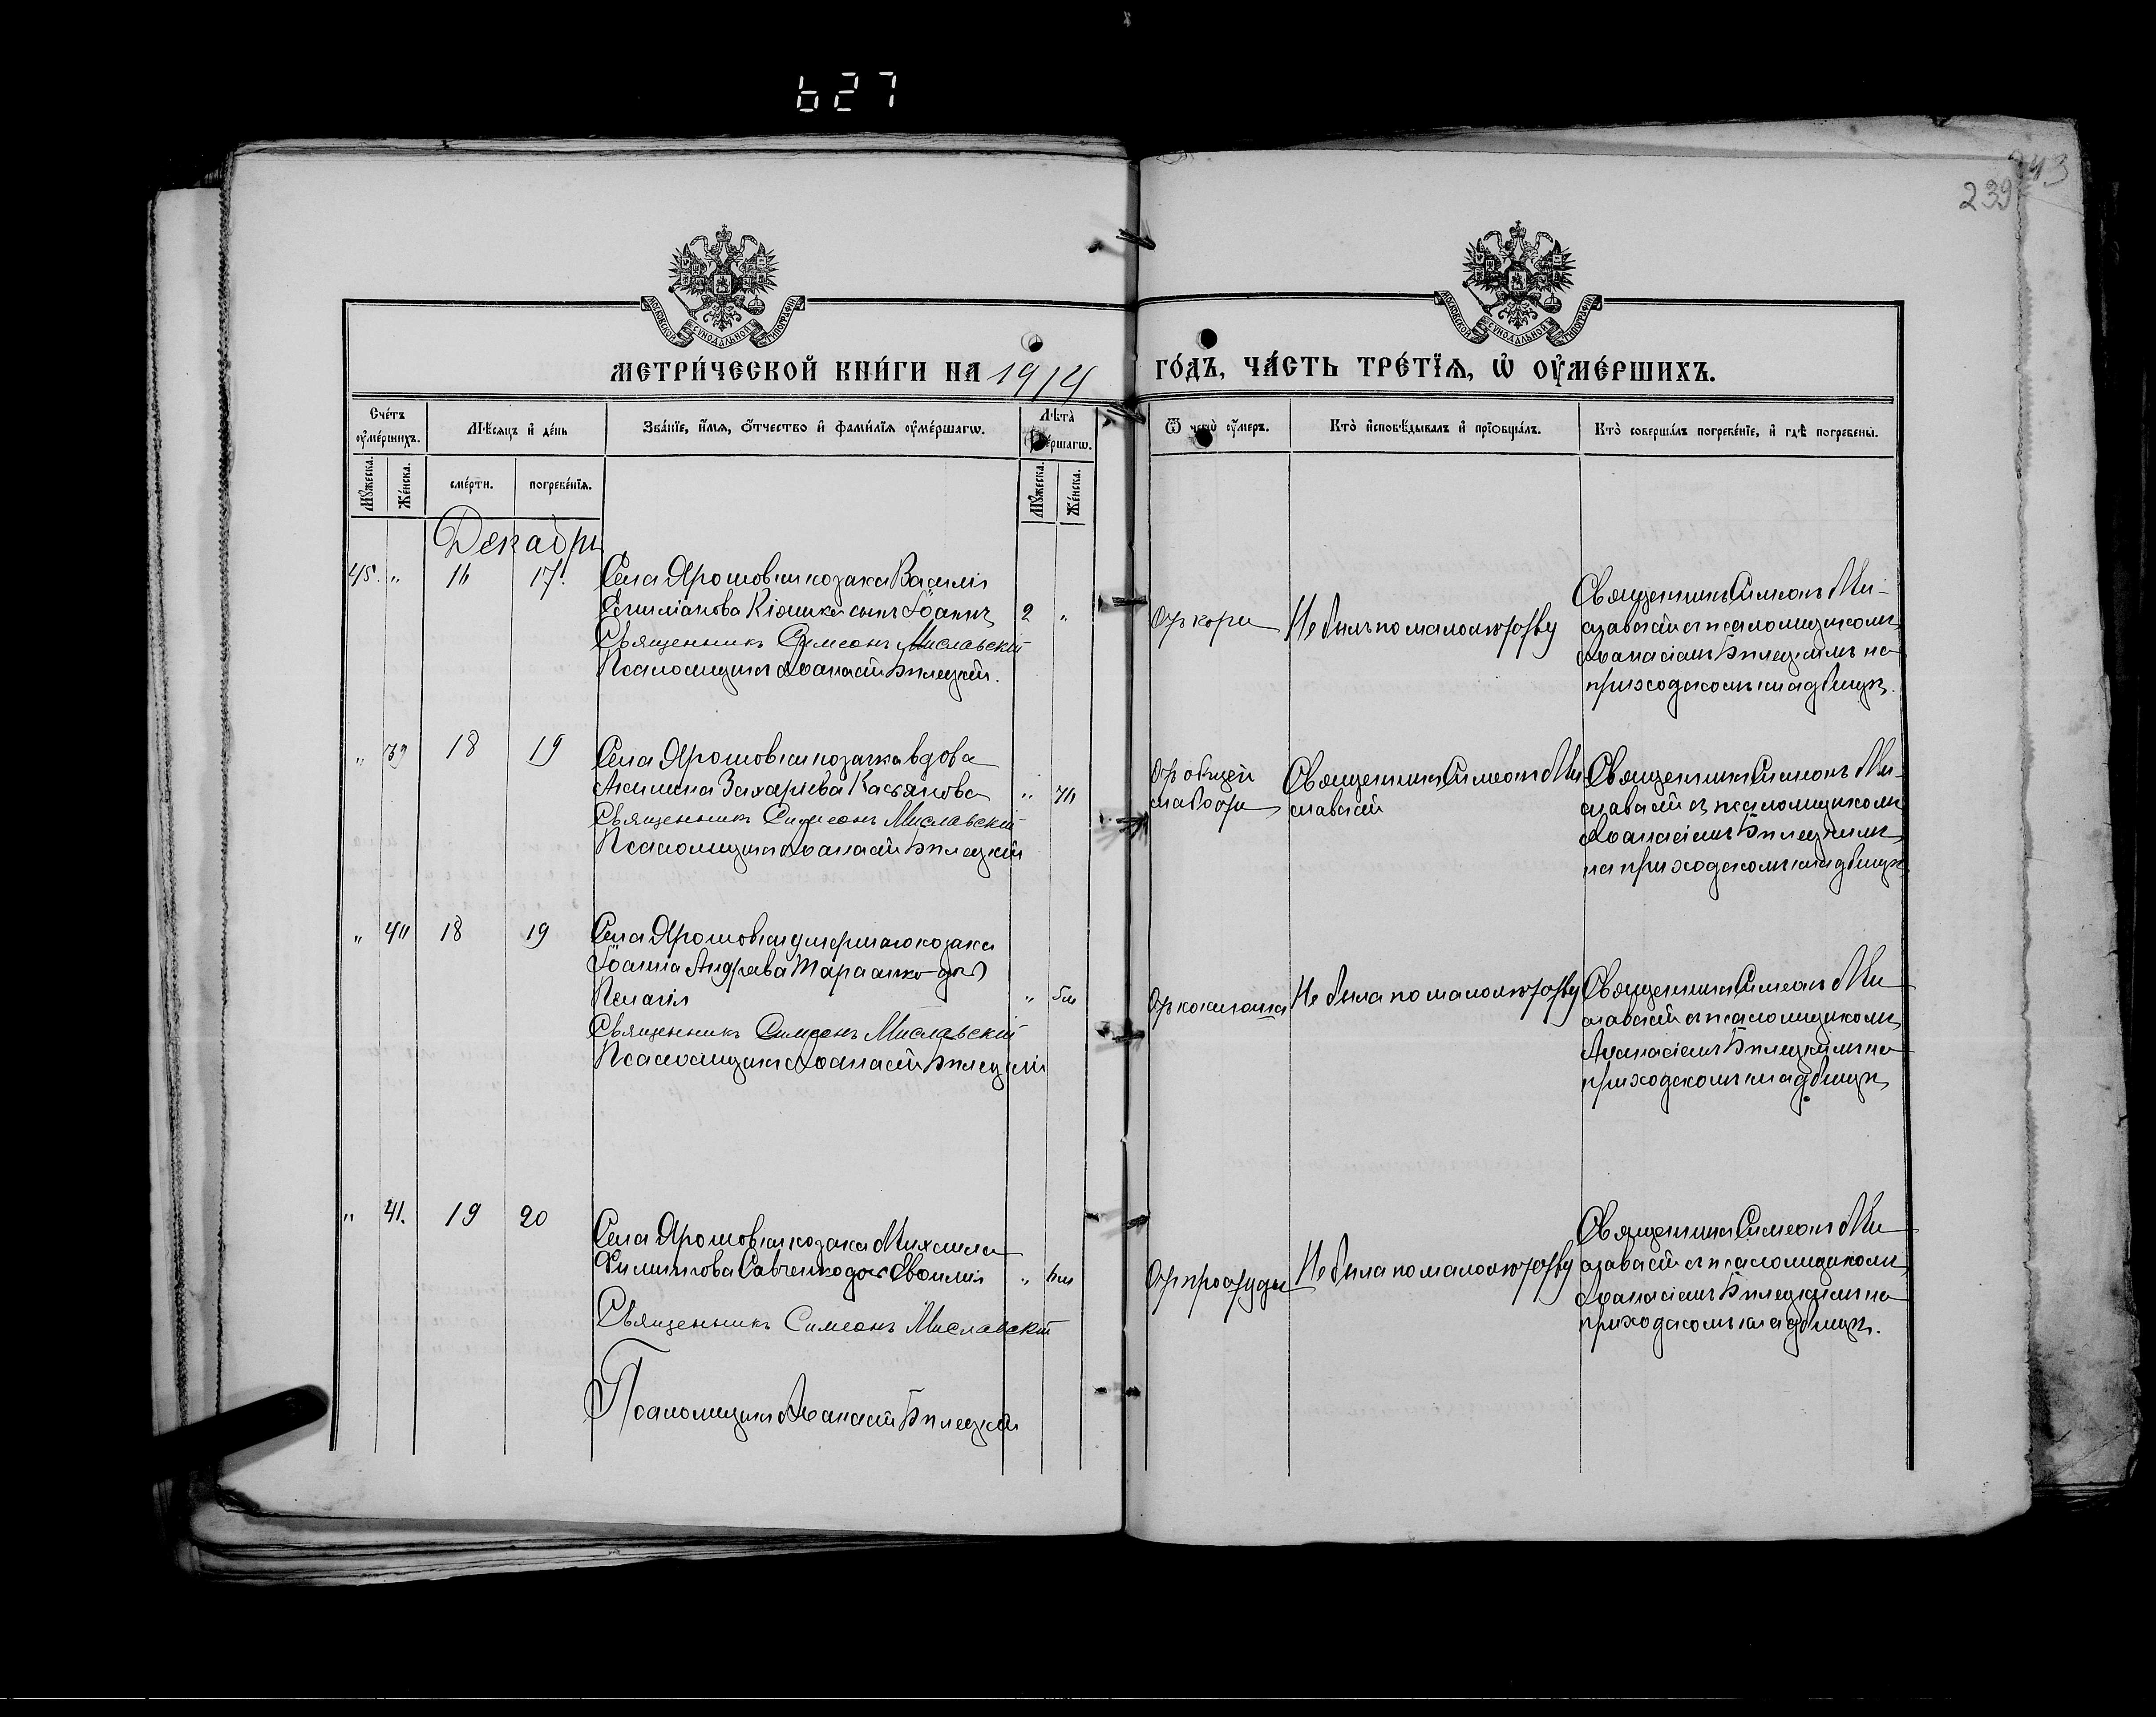 627
243
239
МОСКОВСКОЙ СѴНОДАЛЬНОЙ ТИПОГРАФІИ
МОСКОВСКОЙ СѴНОДАЛЬНОЙ ТИПОГРАФІИ
МЕТРИ́ЧЕСКОЙ КНИ́ГИ НА 1914 ГО́ДЪ, ЧА́СТЬ ТРЕ́ТЇѦ, Ѡ҆ ОУ҆МЕ́РШИХЪ.
Сче́тъ оу҆ме́ршихъ.
Мѣ́сѧцъ и҆ де́нь
Зва́нїе, и҆́мѧ, ѻ҆́тчество и҆ фами́лїѧ оу҆ме́ршагѡ.
Лѣта̀ ме́ршагѡ.
Ѿ чегѡ̀ оу҆́меръ.
Кто̀ и҆сповѣ́дывалъ и҆ прїѻбща́лъ.
Кто̀ соверша́лъ погребе́нїе, и҆ гдѣ̀ погребены̀.
Мꙋ́жеска.
Же́нска.
сме́рти.
погребе́нїѧ.
Мꙋ́жеска.
Же́нска.
Декабрь
45. " 16 17.
Села Ярошовки козака Василія
Емиліанова сынъ Іоаннъ 2 "
Священникъ Симеонъ Миславскій
Псаломщикъ Аѳанасій Бѣлецкій.
Отъ кори
Не былъ по малолѣтству
Священникъ Симеонъ Ми-
славскій съ псаломщикомъ
Аѳанасіемъ Бѣлецкимъ на
приходскомъ кладбищѣ.
" 39 18 19
Села Ярошовки козачка вдова
Акилина Захаріева Касьянова " 70
Священникъ Симеонъ Миславскій
Псаломщикъ Аѳанасій Бѣлецкій
Отъ общей
слабости
Священникъ Симеонъ Ми
славскій
Священникъ Симеонъ Ми-
славскій съ псаломщикомъ
Аѳанасіемъ Бѣлецкимъ
на приходскомъ кладбищѣ
" 40 18 19
Села Ярошовки умершаго козака
Іоанна Андреева дочь
Пелагія " 5м
Священникъ Симеонъ Миславскій
Псаломщикъ Аѳанасій Бѣлецкій
Отъ коклюша
Не была по малолѣтству
Священникъ Симеонъ Ми
славскій съ псаломщикомъ
Аѳанасіемъ Бѣлецкимъ на
приходскомъ кладбищѣ
" 41. 19 20
Села Ярошовки козака Михаила
Филиппова Савченко дочь " 6м
Священникъ Симеонъ Миславскій
Псаломщикъ Аѳанасій Бѣлецкій
Отъ простуды
Не была по малолѣтству
Священникъ Симеонъ Ми
славскій съ псаломщикомъ
Аѳанасіемъ Бѣлецкимъ на
приходскомъ кладбищѣ.